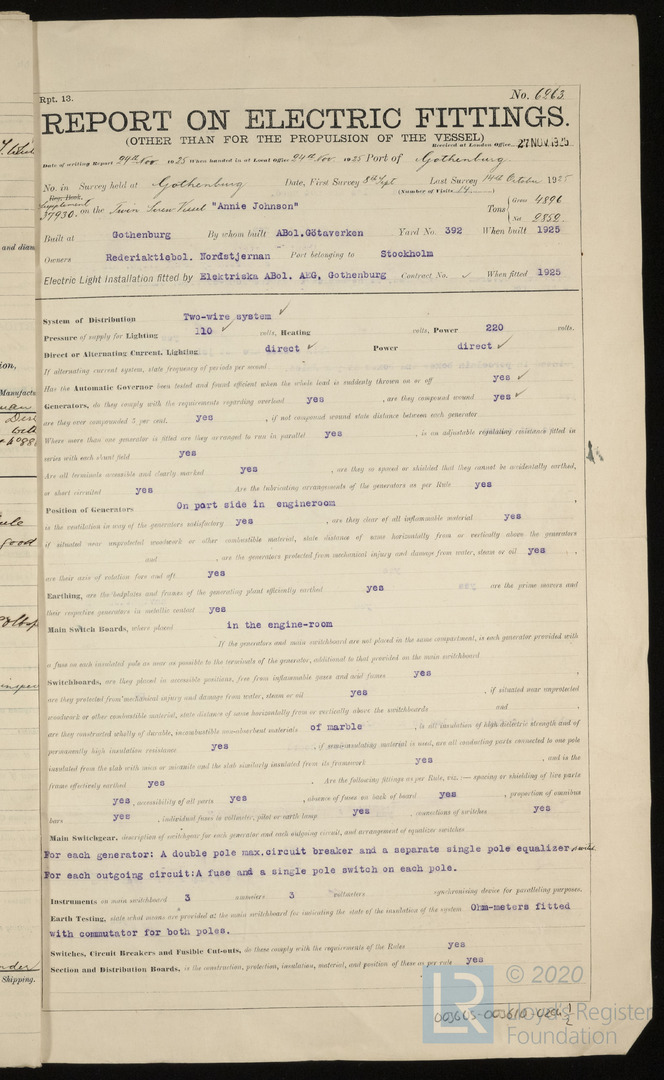 Rpt. 13.
No. 6263
REPORT ON ELECTRIC FITTINGS.
(OTHER THAN FOR THE PROPULSION OF THE VESSEL)
Received at London Office 27 NOV. 1925
Date of writing Report 24th Nov 1925 When handed in at Local Office 24th Nov. 1925 Port of Gothenburg
No. in Survey held at Gothenburg Date, First Survey 8th Sept Last Survey 14th October 1925
Reg. Book. (Number of Visits 14)
Supplement
37930. on the Twin Screw Vessel "Annie Johnson" Tons { Gross 4896
Net 2850
Built at Gothenburg By whom built ABol.Götaverken Yard No. 392 When built 1925
Owners Rederiaktiebol. Nordstjernan Port belonging to Stockholm
Electric Light Installation fitted by Elektriska ABol. AEG, Gothenburg Contract No. ✓ When fitted 1925
System of Distribution Two-wire system ✓
Pressure of supply for Lighting 110 ✓ volts, Heating volts, Power 220 volts.
Direct or Alternating Current, Lighting direct ✓ Power direct ✓
If alternating current, state frequency of periods per second
Has the Automatic Governor been tested and found efficient when the whole load is suddenly thrown on or off yes ✓
Generators, do they comply with the requirements regarding overload yes , are they compound wound yes ✓
are they over compounded 5 per cent. yes , if not compound wound state distance between each generator
Where more than one generator is fitted are they arranged to run in parallel yes , is an adjustable regulating resistance fitted in
series with each shunt field yes
Are all terminals accessible and clearly marked yes , are they so spaced or shielded that they cannot be accidentally earthed,
or short circuited yes Are the lubricating arrangements of the generators as per Rule yes
Position of Generators On port side in engineroom
is the ventilation in way of the generators satisfactory yes , are they clear of all inflammable material yes
if situated near unprotected woodwork or other combustible material, state distance of same horizontally from or vertically above the generators
and , are the generators protected from mechanical injury and damage from water, steam or oil yes ,
are their axis of rotation fore and aft yes
Earthing, are the bedplates and frames of the generating plant efficiently earthed yes are the prime movers and
their respective generators in metallic contact yes
Main Switch Boards, where placed in the engine-room
If the generators and main switchboard are not placed in the same compartment, is each generator provided with
a fuse on each insulated pole as near as possible to the terminals of the generator, additional to that provided on the main switchboard
Switchboards, are they placed in accessible positions, free from inflammable gases and acid fumes yes ,
are they protected from mechanical injury and damage from water, steam or oil yes , if situated near unprotected
woodwork or other combustible material, state distance of same horizontally from or vertically above the switchboards and ,
are they constructed wholly of durable, incombustible non-absorbent materials of marble , is all insulation of high dielectric strength and of
permanently high insulation resistance yes , if semi-insulating material is used, are all conducting parts connected to one pole
insulated from the slab with mica or micanite and the slab similarly insulated from its framework yes , and is the
frame effectively earthed yes . Are the following fittings as per Rule, viz.:— spacing or shielding of live parts
yes , accessibility of all parts yes , absence of fuses on back of board yes , proportion of omnibus
bars yes , individual fuses to voltmeter, pilot or earth lamp yes , connections of switches yes
Main Switchgear, description of switchgear for each generator and each outgoing circuit, and arrangement of equalizer switches
For each generator: A double pole max.circuit breaker and a separate single pole equalizer
For each outgoing circuit:A fuse and a single pole switch on each pole.
Instruments on main switchboard 3 ammeters 3 voltmeters synchronising device for paralleling purposes.
Earth Testing, state what means are provided at the main switchboard for indicating the state of the insulation of the system Ohm-meters fitted
with commutator for both poles.
Switches, Circuit Breakers and Fusible Cut-outs, do these comply with the requirements of the Rules yes
Section and Distribution Boards, is the construction, protection, insulation, material, and position of these as per rule yes
and diam
Manufactu
good
Shipping.
LR © 2020
Lloyd's Register
Foundation
003605-003610-0204 1/2